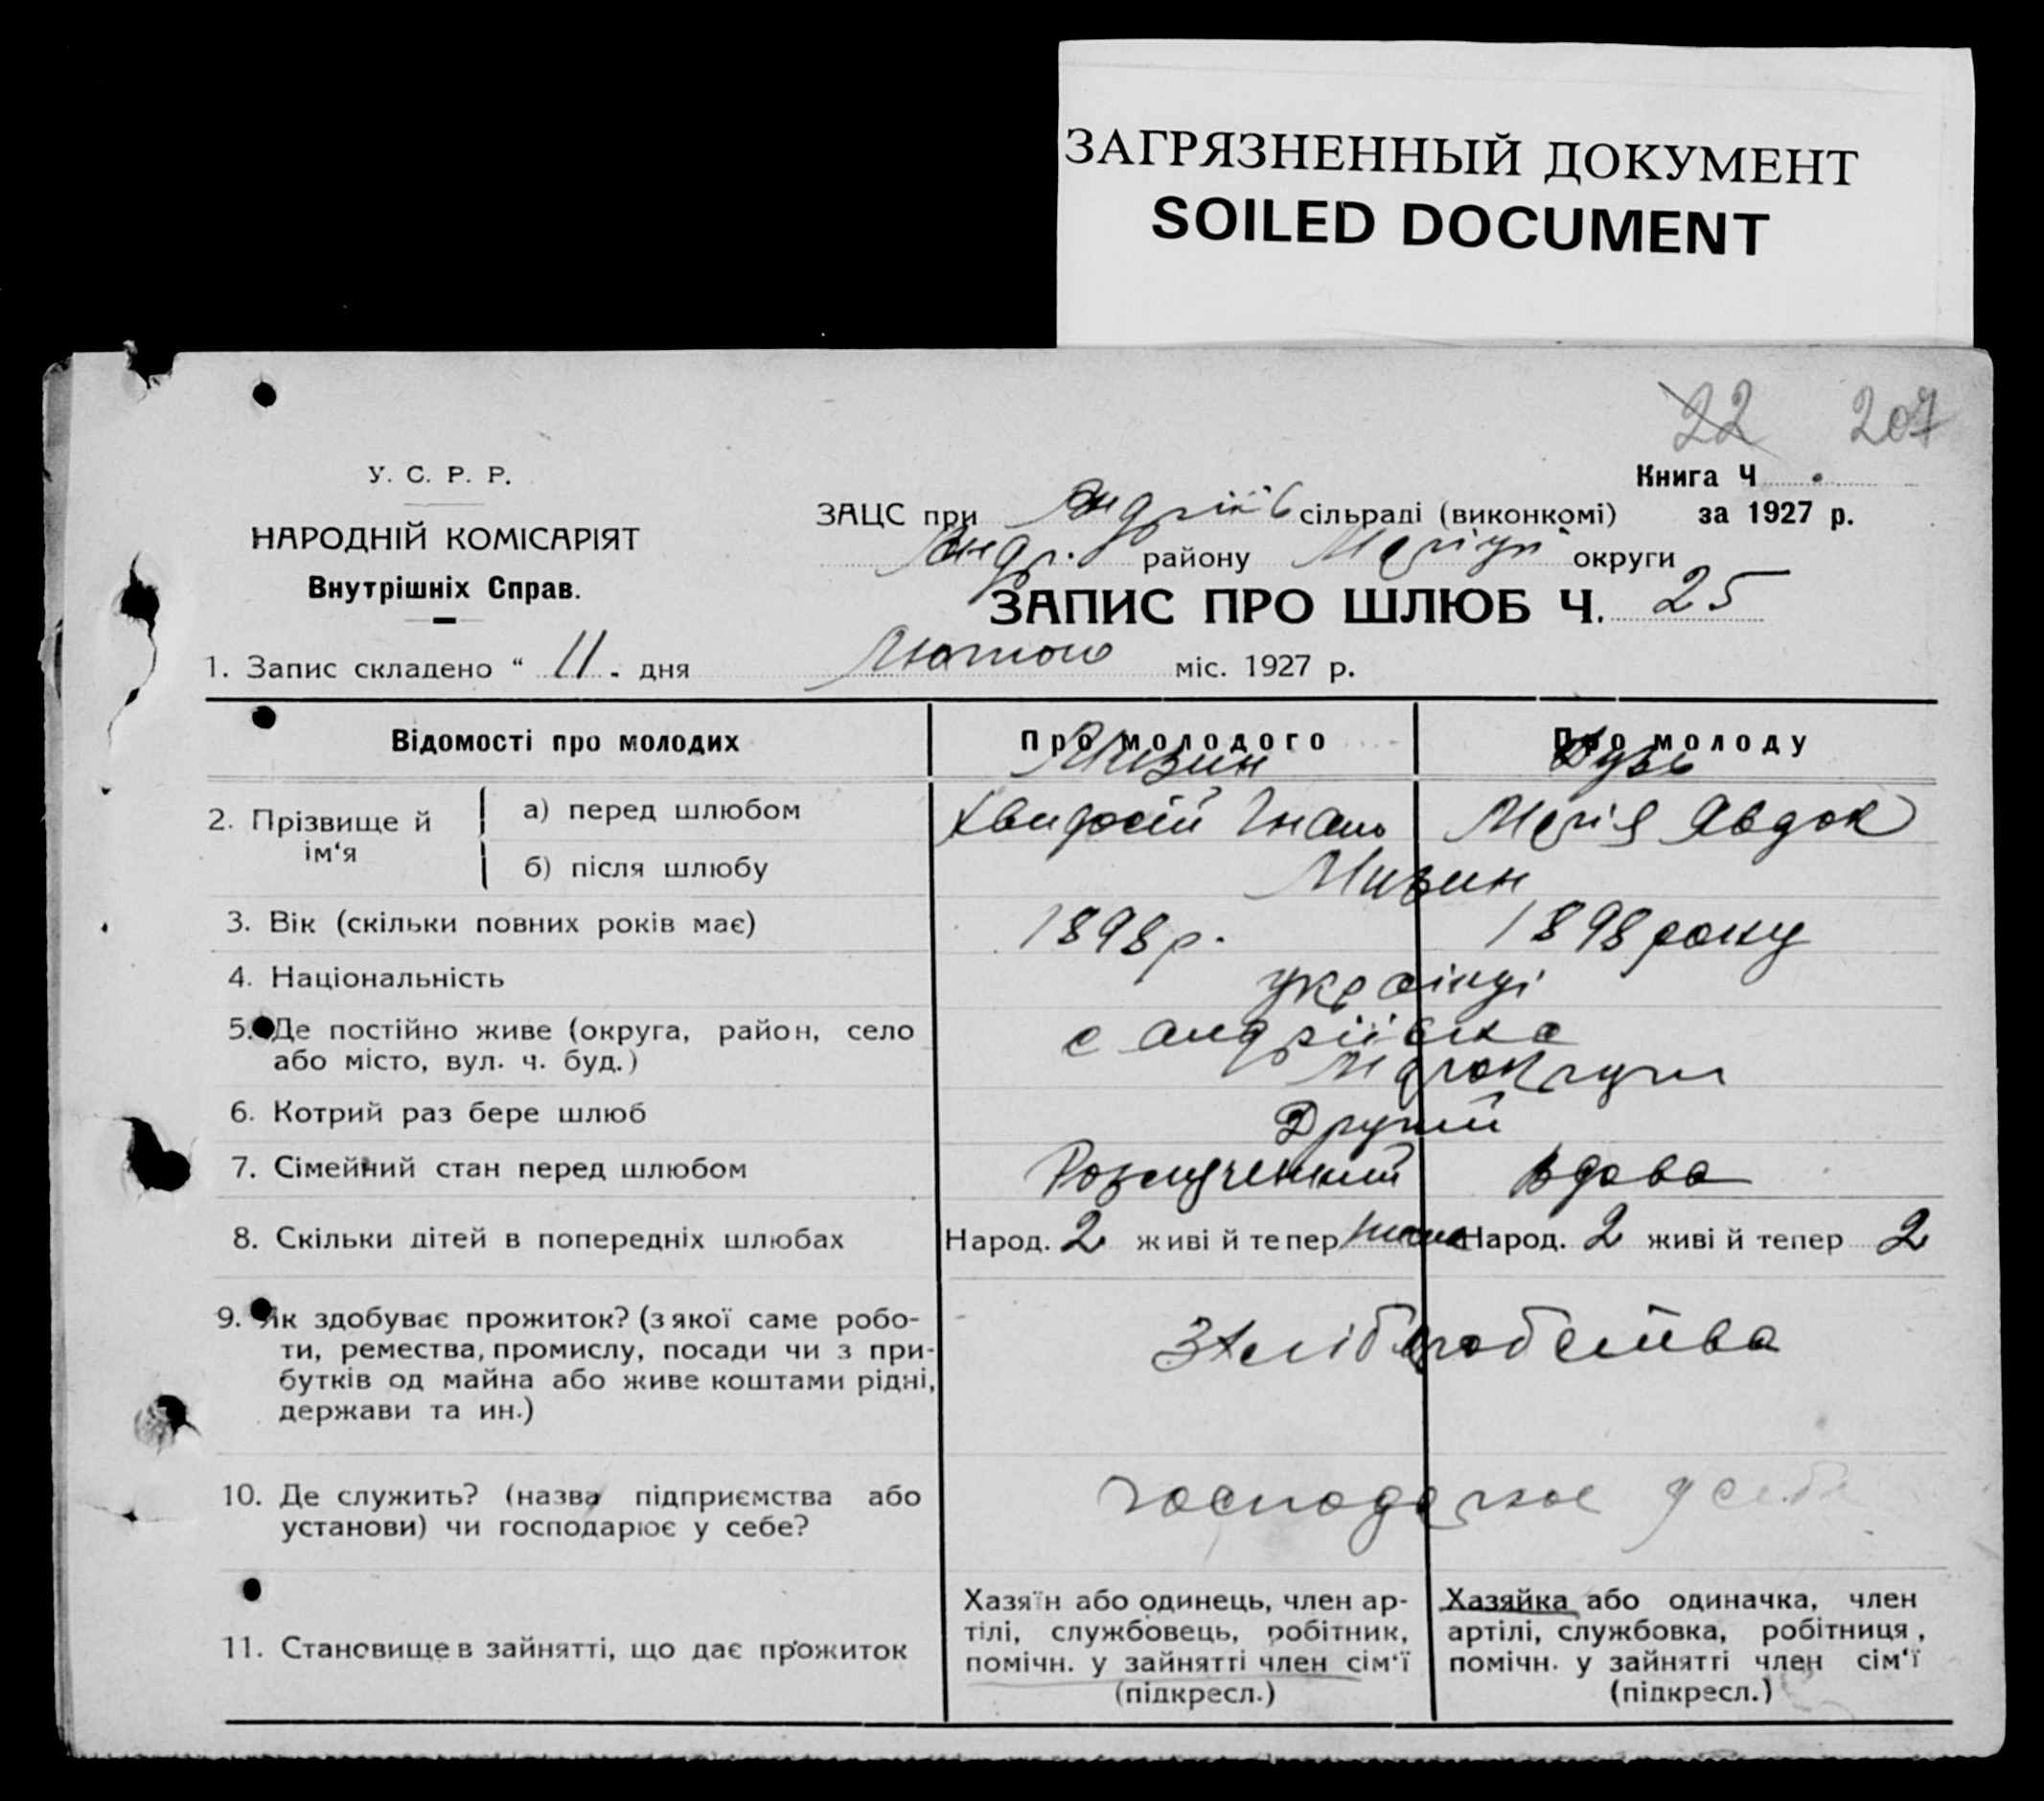 ЗАГРЯЗНЕННЫЙ ДОКУМЕНТ
SOILED DOCUMENT
22 207
У. С. Р. Р.
НАРОДНІЙ КОМІСАРІЯТ
Внутрішніх Справ.
Книга Ч.
ЗАЦС при Андріїв сільраді (виконкомі) за 1927 р.
Андр. району Маріуп округи
ЗАПИС ПРО ШЛЮБ Ч. 25
1. Запис складено “ 11 . дня Лютого міс. 1927 р.
Відомості про молодих
Про молодого
Про молоду
2. Прізвище й ім‘я
а) перед шлюбом
Мизин
Хведосій Гнать
Дузь
Марія Явдок
б) після шлюбу
Мизин
3. Вік (скільки повних років має) 1898 р. 1898 року
4. Національність українці
5. Де постійно живе (округа, район, село
або місто, вул. ч. буд.)
с Андріївка
6. Котрий раз бере шлюб Другий
7. Сімейний стан перед шлюбом Розлученний вдова
8. Скільки дітей в попередніх шлюбах Народ. 2 живі й тепер Народ. 2 живі й тепер 2
9. Як здобуває прожиток? (з якої саме робо-
ти, ремества, промислу, посади чи з при-
бутків од майна або живе коштами рідні,
держави та ин.)
З хліборобства
10. Де служить? (назва підприємства або
установи) чи господарює у себе?
господарює у себе
11. Становище в зайнятті, що дає прожиток
Хазяїн або одинець, член ар-
тілі, службовець, робітник,
помічн. у зайнятті член сім‘ї
(підкресл.)
Хазяйка або одиначка, член
артілі, службовка, робітниця,
помічн. у зайнятті член сім‘ї
(підкресл.)